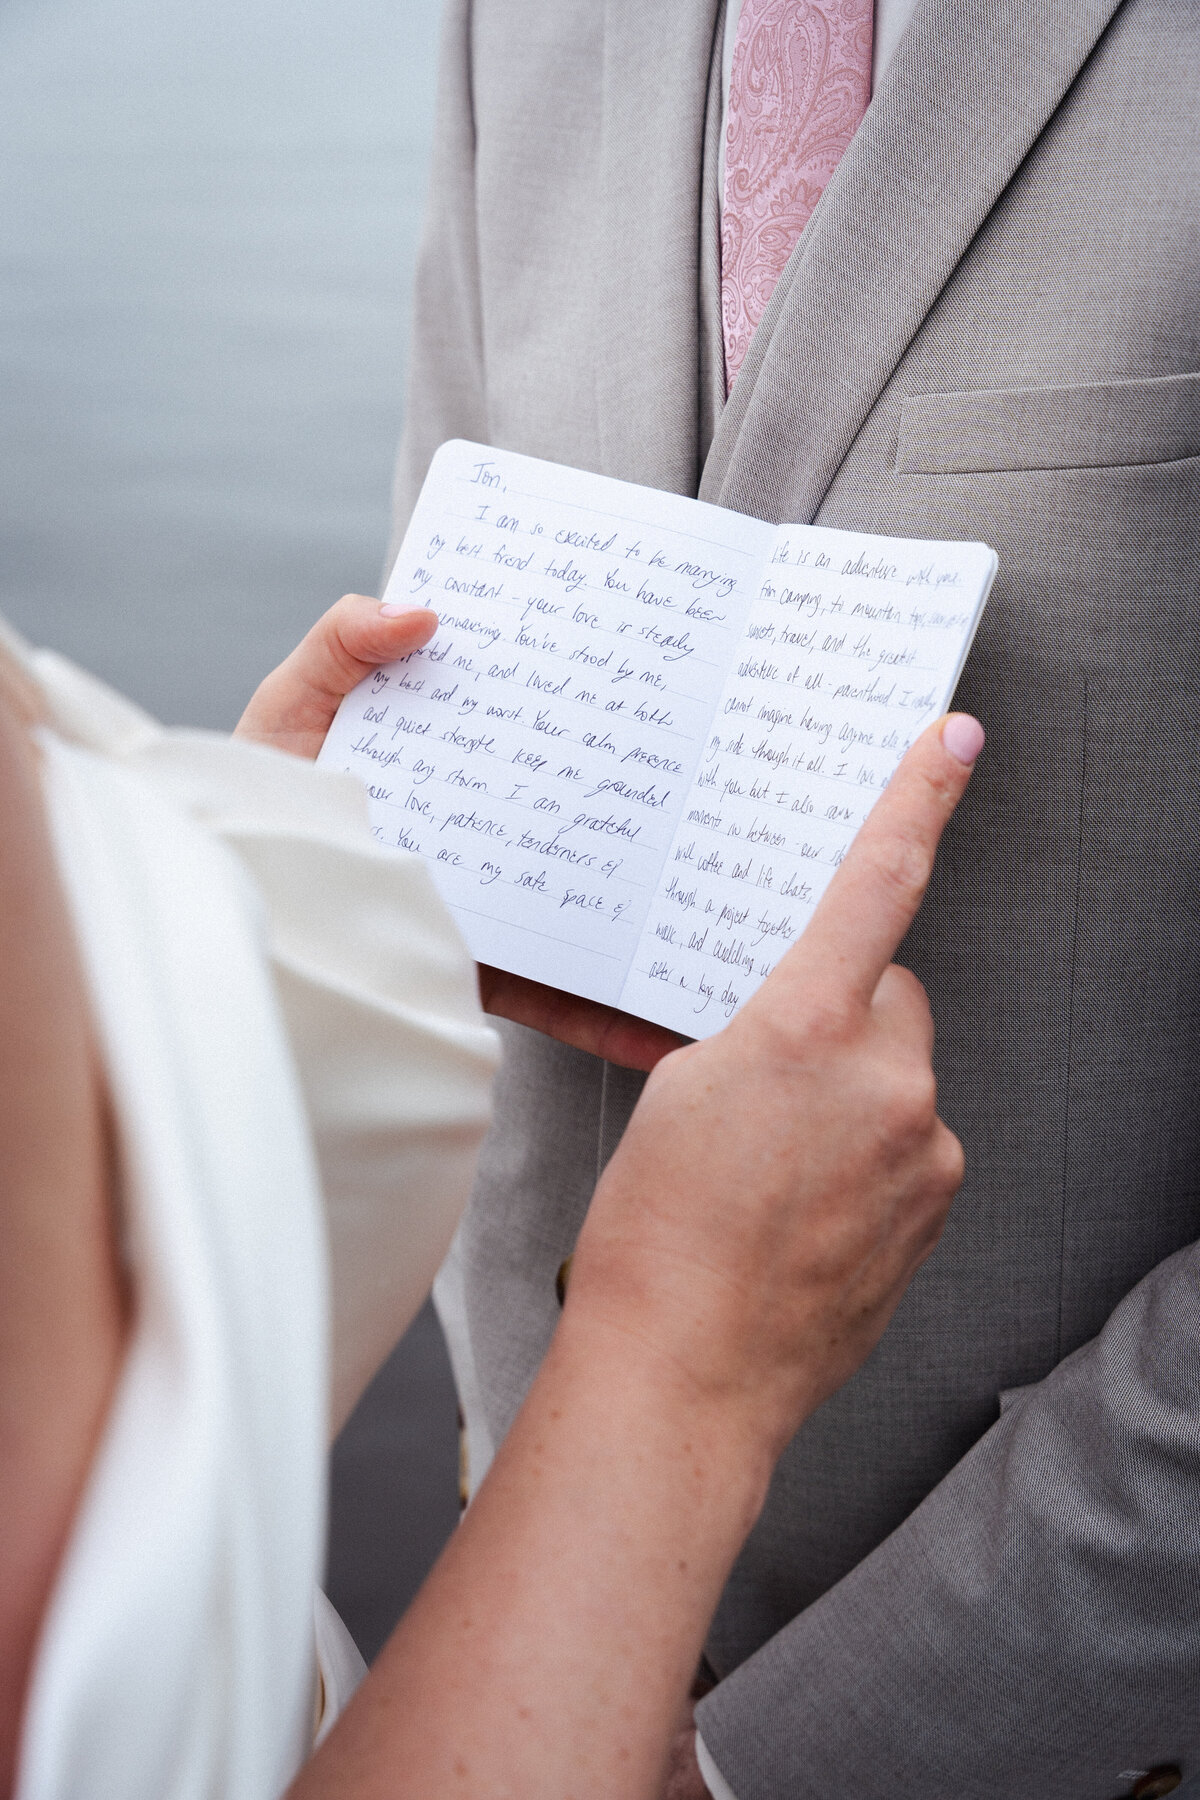 Jon,
I am so excited to be marrying
my best friend today. You have been
my constant - your love is steady
unwavering. You've stood by me,
me, and loved me at both
my best and my worst. Your calm presence
and quiet strength keep me grounded
through any storm. I am grateful
your love, patience, tenderness &
You are my safe space &
life is an adventure with you.
From camping, to mountain tops,
sunsets, travel, and the greatest
adventure of all - parenthood. I really
cannot imagine having anyone else
my side through it all. I love
with you but I also savor
moments in between - our
with coffee and life chats,
through a project together
walk, and cuddling
after a long day